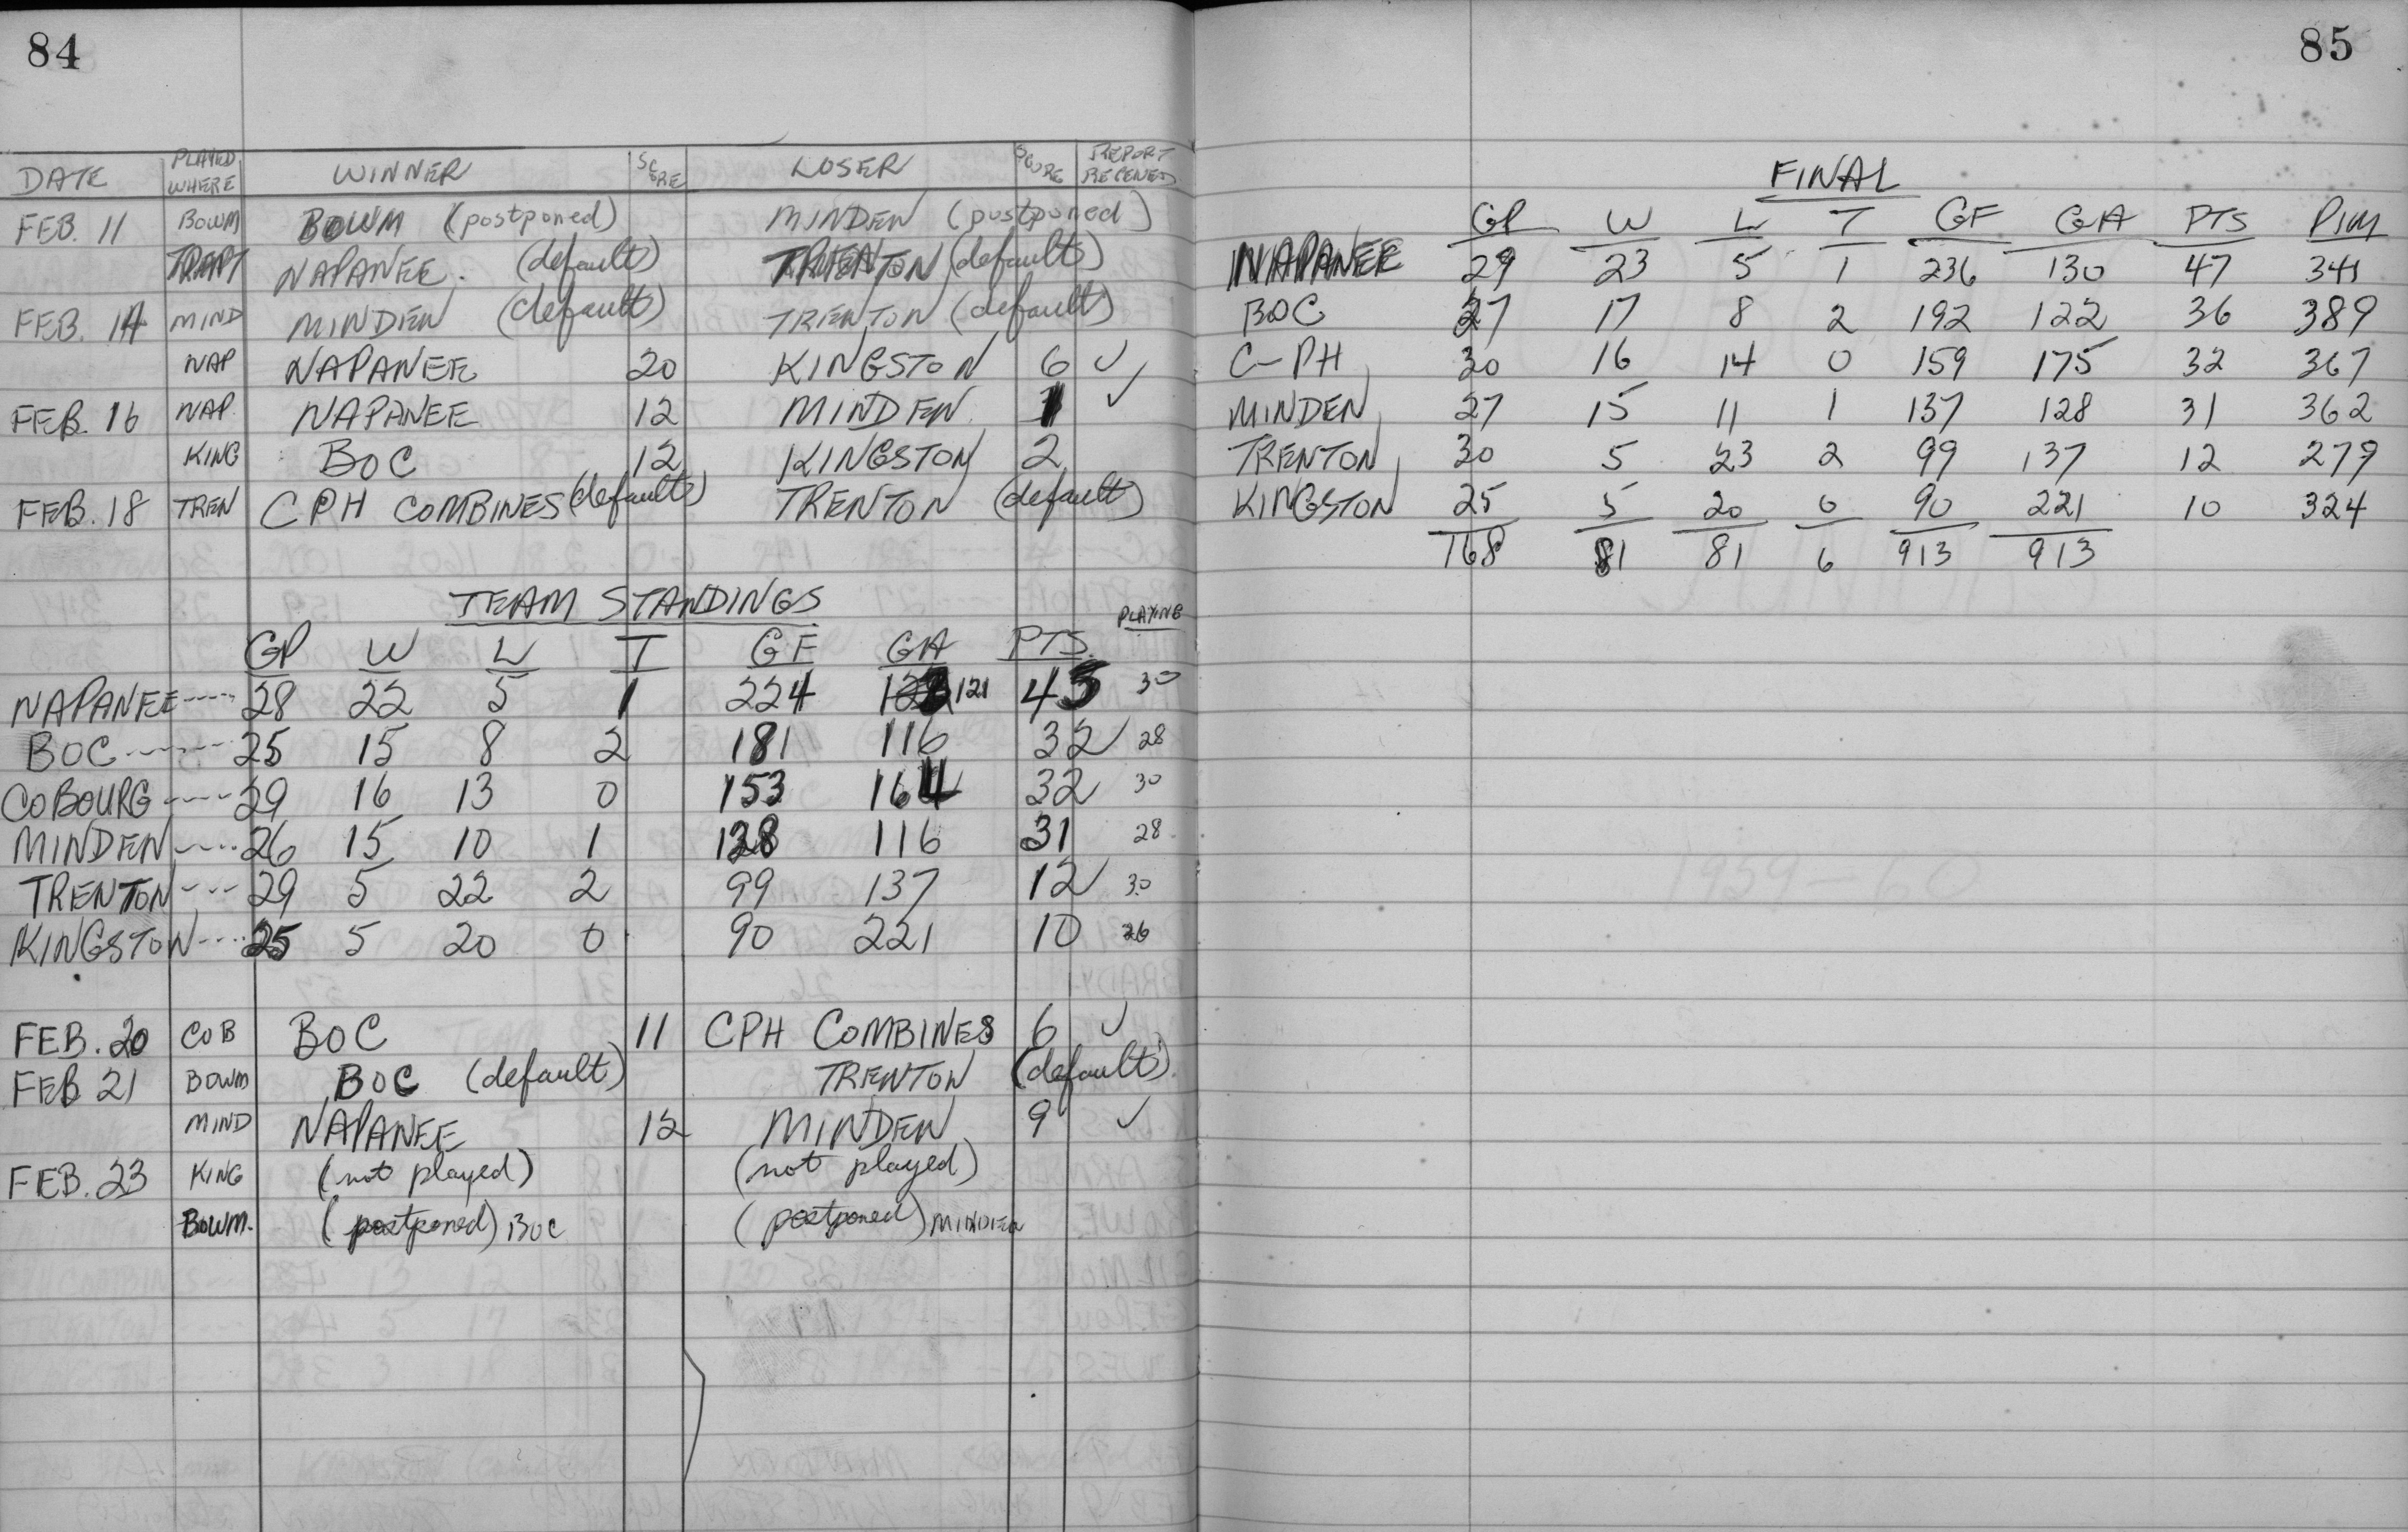 84
DATE PLAYED WHERE WINNER SCORE LOSER SCORE REPORT RECEIVED
FEB. 11 BOWM BOWM (postponed) MINDEN (postponed)
NAPANEE. (default) TRENTON (default)
FEB. 14 MIND MINDEN (default) TRENTON (default)
NAP NAPANEE 20 KINGSTON 6 ✓
FEB. 16 NAP. NAPANEE 12 MINDEN 1 ✓
KING BOC 12 KINGSTON 2
FEB. 18 TREN CPH COMBINES (default) TRENTON (default)
TEAM STANDINGS
GP W L T GF GA PTS. PLAYING
NAPANEE ---- 28 22 5 1 224 121 45 30
BOC ------ 25 15 8 2 181 116 32 28
COBOURG ---- 29 16 13 0 153 164 32 30
MINDEN ---- 26 15 10 1 128 116 31 28
TRENTON --- 29 5 22 2 99 137 12 30
KINGSTON ---- 25 5 20 0 90 221 10 26
FEB. 20 COB BOC 11 CPH COMBINES 6 ✓
FEB 21 BOWM BOC (default) TRENTON (default)
MIND NAPANEE 12 MINDEN 9 ✓
FEB. 23 KING (not played) (not played)
BOWM. (postponed) BOC (postponed) MINDEN
85
FINAL
GP W L T GF GA PTS PIM
NAPANEE 29 23 5 1 236 130 47 341
BOC 27 17 8 2 192 122 36 389
C-PH 30 16 14 0 159 175 32 367
MINDEN 27 15 11 1 137 128 31 362
TRENTON 30 5 23 2 99 137 12 279
KINGSTON 25 5 20 0 90 221 10 324
168 81 81 6 913 913
1959-60